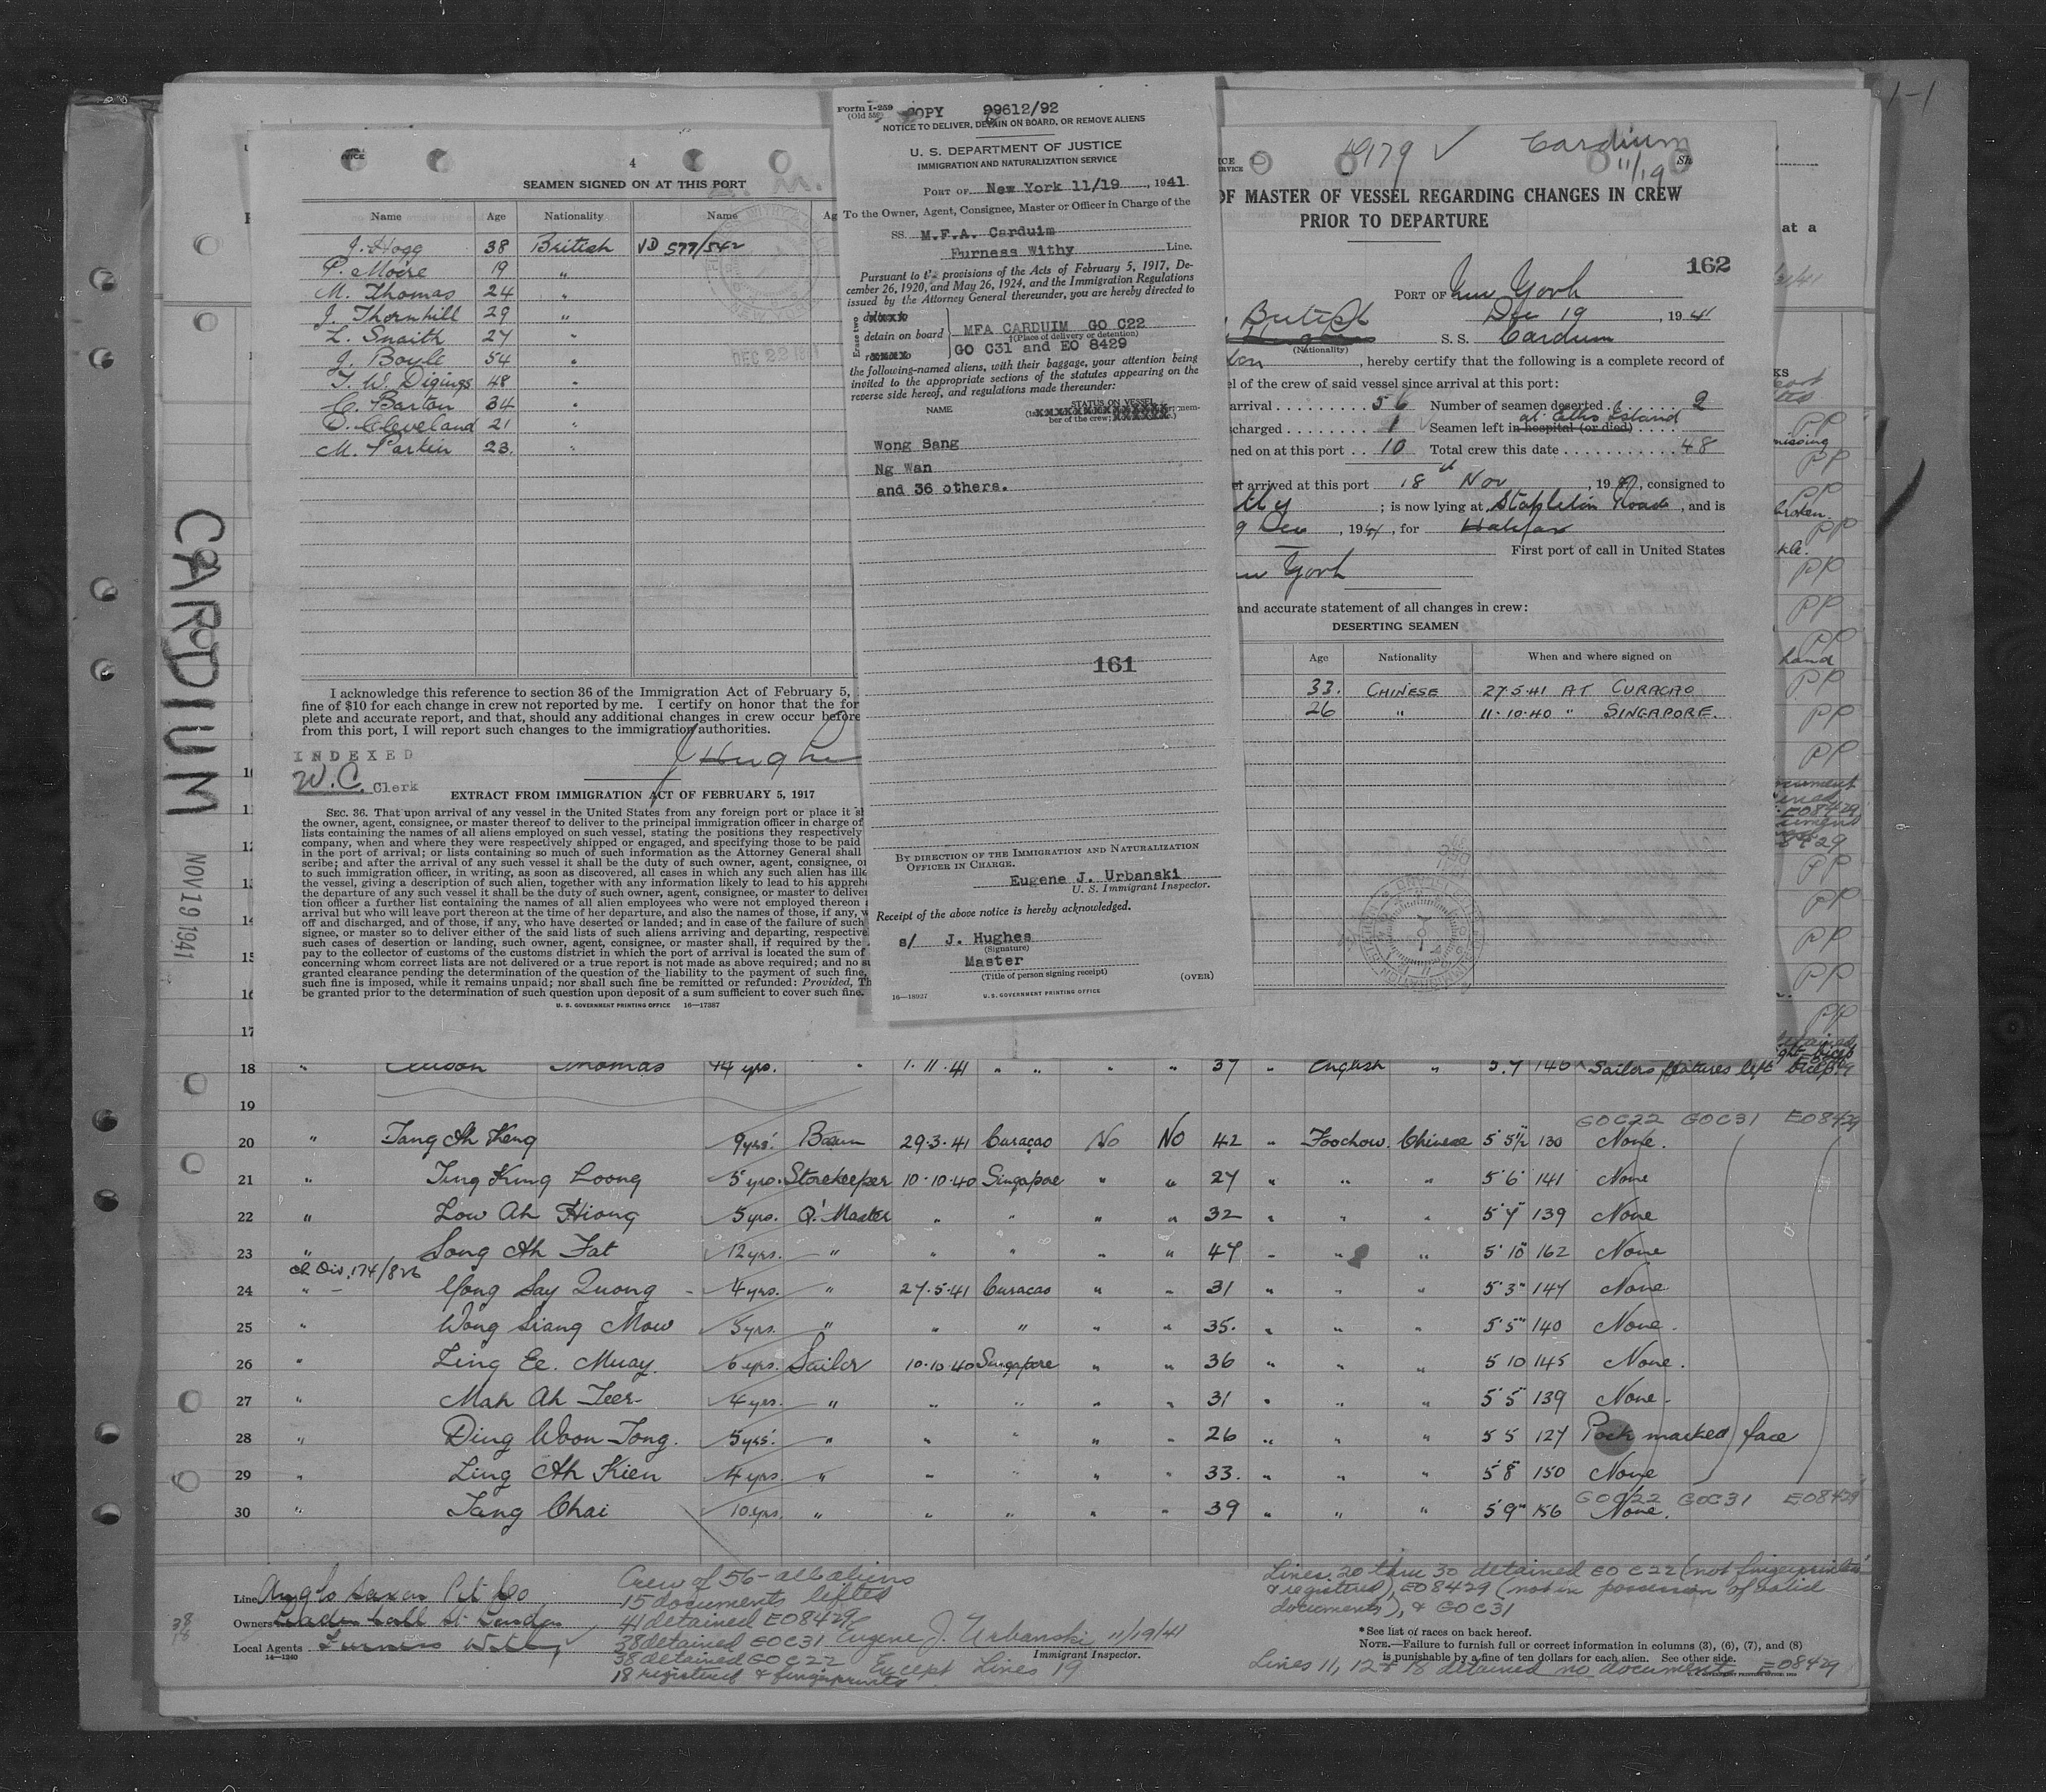 CARDIUM
NOV 19 1941
4
SEAMEN SIGNED ON AT THIS PORT
Name Age Nationality Name Ag
J. Hogg 38 British VD 577/542
P. Moore 19 "
M. Thomas 24 "
J. Thornhill 29 "
L. Snaith 27 "
J. Boyle 54 "
T. W. Digings 48 "
C. Barton 34 "
D. Cleveland 21 "
M. Partin 23. "
DEC 22
I acknowledge this reference to section 36 of the Immigration Act of February 5,
fine of $10 for each change in crew not reported by me. I certify on honor that the for
plete and accurate report, and that, should any additional changes in crew occur before
from this port, I will report such changes to the immigration authorities.
J Hughes
INDEXED
W.C. Clerk
EXTRACT FROM IMMIGRATION ACT OF FEBRUARY 5, 1917
SEC. 36. That upon arrival of any vessel in the United States from any foreign port or place it sh
the owner, agent, consignee, or master thereof to deliver to the principal immigration officer in charge of
lists containing the names of all aliens employed on such vessel, stating the positions they respectively
company, when and where they were respectively shipped or engaged, and specifying those to be paid
in the port of arrival; or lists containing so much of such information as the Attorney General shall
scribe; and after the arrival of any such vessel it shall be the duty of such owner, agent, consignee, or
to such immigration officer, in writing, as soon as discovered, all cases in which any such alien has ille
the vessel, giving a description of such alien, together with any information likely to lead to his apprehe
the departure of any such vessel it shall be the duty of such owner, agent, consignee, or master to deliver
tion officer a further list containing the names of all alien employees who were not employed thereon
arrival but who will leave port thereon at the time of her departure, and also the names of those, if any, w
off and discharged, and of those, if any, who have deserted or landed; and in case of the failure of such
signee, or master so to deliver either of the said lists of such aliens arriving and departing, respective
such cases of desertion or landing, such owner, agent, consignee, or master shall, if required by the
pay to the collector of customs of the customs district in which the port of arrival is located the sum of
concerning whom correct lists are not delivered or a true report is not made as above required; and no su
granted clearance pending the determination of the question of the liability to the payment of such fine,
such fine is imposed, while it remains unpaid; nor shall such fine be remitted or refunded: Provided, Th
be granted prior to the determination of such question upon deposit of a sum sufficient to cover such fine.
U. S. GOVERNMENT PRINTING OFFICE 16—17387
Form I-259
(Old 559)
COPY 99612/92
NOTICE TO DELIVER, DETAIN ON BOARD, OR REMOVE ALIENS
U. S. DEPARTMENT OF JUSTICE
IMMIGRATION AND NATURALIZATION SERVICE
PORT OF New York 11/19, 1941
To the Owner, Agent, Consignee, Master or Officer in Charge of the
SS. M.F.A. Carduim
Furness Withy Line.
Pursuant to the provisions of the Acts of February 5, 1917, De-
cember 26, 1920, and May 26, 1924, and the Immigration Regulations
issued by the Attorney General thereunder, you are hereby directed to
Erase two
detain on board MFA CARDUIM GO C22
(Place of delivery or detention)
GO C31 and EO 8429
the following-named aliens, with their baggage, your attention being
invited to the appropriate sections of the statutes appearing on the
reverse side hereof, and regulations made thereunder:
NAME STATUS ON VESSEL
ber of the crew;
Wong Sang
Ng Wan
and 36 others.
161
BY DIRECTION OF THE IMMIGRATION AND NATURALIZATION
OFFICER IN CHARGE.
Eugene J. Urbanski
U. S. Immigrant Inspector.
Receipt of the above notice is hereby acknowledged.
s/ J. Hughes
(Signature)
Master
(Title of person signing receipt)
(OVER)
16—18927 U. S. GOVERNMENT PRINTING OFFICE
1-1
979 ✓ Cardium
11/19
OF MASTER OF VESSEL REGARDING CHANGES IN CREW
PRIOR TO DEPARTURE
162
PORT OF New York
British Dec 19, 1941
(Nationality) S. S. Cardium
, hereby certify that the following is a complete record of
el of the crew of said vessel since arrival at this port:
arrival 56 Number of seamen deserted 2
at Ellis Island
charged 1 Seamen left in hospital (or died)
ned on at this port 10 Total crew this date 48
arrived at this port 18th Nov, 1941, consigned to
; is now lying at Stapleton Roads, and is
Dec, 1941, for Halifax
First port of call in United States
New York
and accurate statement of all changes in crew:
DESERTING SEAMEN
Age Nationality When and where signed on
33. CHINESE 27·5·41 AT CURACAO
26 " 11·10·40 " SINGAPORE.
18 " Thomas 44 yrs. " 1.11.41 " " " " 37 " English " 5.7 140 Sailors features left bicep
19
GOC22 GOC31 EO8429
20 " Tang Ah Keng 9yrs. Bosun 29·3·41 Curaçao No No 42 " Foochow Chinese 5'5½ 130 None.
21 " Ting Kung Loong 5 yrs. Storekeeper 10·10·40 Singapore " " 27 " " " 5'6" 141 None
22 " Low Ah Hiong 5yrs. Q. Master " " " " 32 " " " 5'7" 139 None
23 " Song Ah Fat 12 yrs. " " " " " 47 " " " 5'10" 162 None
174/826
24 " Yong Say Quong 4 yrs. " 27·5·41 Curacao " " 31 " " " 5'3" 147 None
25 " Wong Siang Mow 5yrs. " " " " " 35. " " " 5'5" 140 None.
26 " Ling Ee. Muay. 6 yrs. Sailor 10·10·40 Singapore " " 36 " " " 5 10 145 None.
27 " Mah Ah Teer 4 yrs. " " " " " 31 " " " 5'5" 139 None
28 " Ding Woon Tong. 5yrs. " " " " " 26 " " " 5 5 127 Pock marked face
29 " Ling Ah Kien 4 yrs. " " " " " 33. " " " 5'8" 150 None
GOC22 GOC31 EO8429
30 " Tang Chai 10 yrs. " " " " " 39 " " " 5'9" 156 None.
Line Anglo Saxon Pet Co
Owners Leadenhall St London
Local Agents Furness Withy
14—1240
Crew of 56 - all aliens
15 documents lifted
41 detained EO8429
38 detained EOC31 Eugene J. Urbanski 11/19/41
Immigrant Inspector.
38 detained GOC22 Except Lines 19
18 registered & fingerprinted
Lines 20 thru 30 detained EO C22 (not fingerprinted
& registered), EO8429 (not in possession of valid
documents), & GOC31
*See list of races on back hereof.
NOTE.—Failure to furnish full or correct information in columns (3), (6), (7), and (8)
is punishable by a fine of ten dollars for each alien. See other side.
Lines 11, 12 & 18 detained no documents EO8429